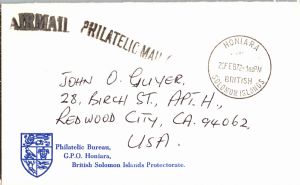 AIRMAIL
PHILATELIC MAIL
HONIARA
2[?]FEB72-1[?]PM
BRITISH
SOLOMON ISLANDS
JOHN O. GUYER,
28, BIRCH ST., APT. H.,
REDWOOD CITY, CA. 94062,
USA.
Philatelic Bureau,
G.P.O. Honiara,
British Solomon Islands Protectorate.